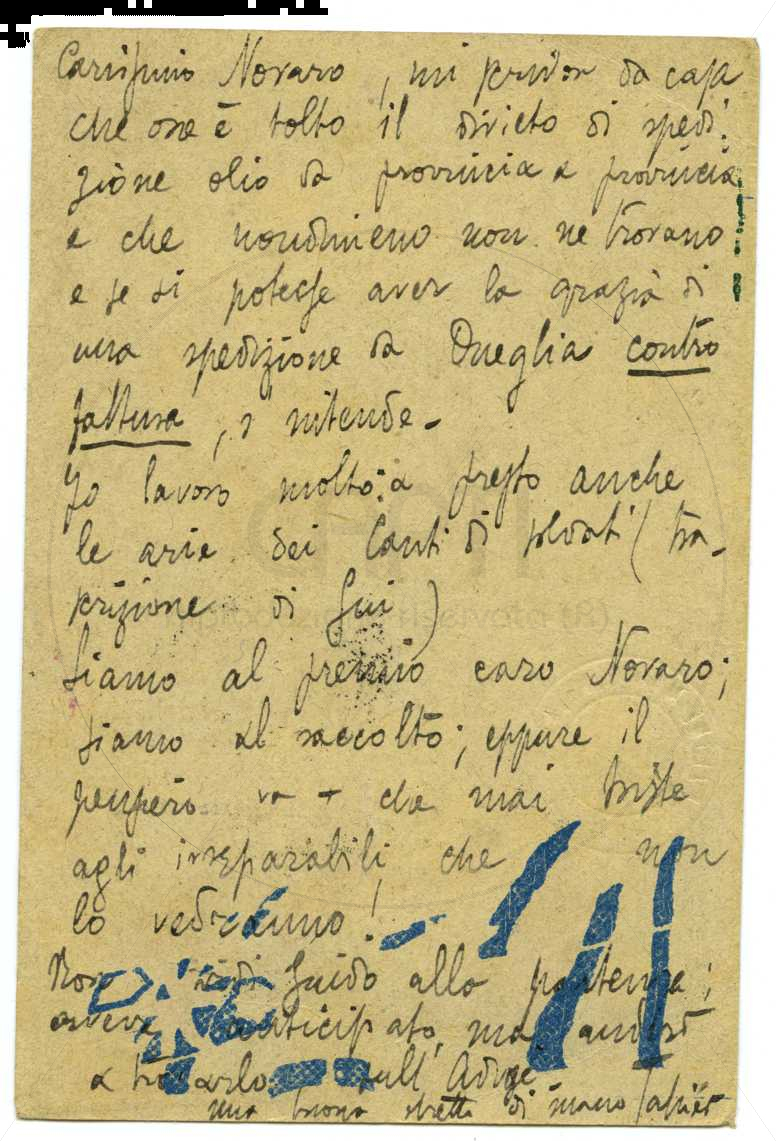 Carissimo Novaro, mi scrivon da casa
che ora è tolto il divieto di spedi:
zione olio da provincia a provincia
e che nondimeno non ne trovano
e se si potesse aver la grazia di
una spedizione da Oneglia contro
fattura, s'intende -
Io lavoro molto: a presto anche
le arie dei Canti di soldati (tra-
scrizione di Gui)
Siamo al premio caro Novaro;
siamo al raccolto; eppure il
pensiero va + che mai triste
agli irreparabili, che non
lo vedranno!
Non vidi Guido alla partenza;
aveva anticipato, ma andrò
a trovarlo sull'Adige
una buona stretta di mano Jahier